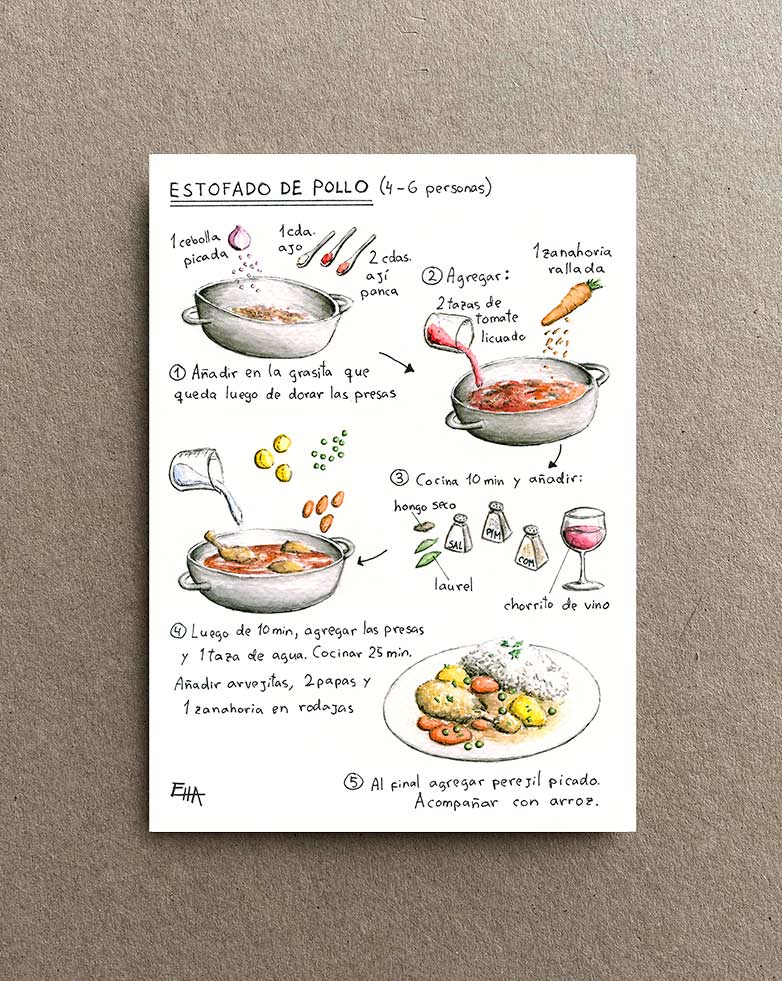 ESTOFADO DE POLLO (4-6 personas)
1 cebolla
picada
1 cda.
ajo
2 cdas.
ají
panca
① Añadir en la grasita que
queda luego de dorar las presas
② Agregar:
2 tazas de
tomate
licuado
1 zanahoria
rallada
③ Cocina 10 min y añadir:
hongo seco
laurel
SAL
PIM
COM
chorrito de vino
④ Luego de 10 min, agregar las presas
y 1 taza de agua. Cocinar 25 min.
Añadir arvejitas, 2 papas y
1 zanahoria en rodajas
⑤ Al final agregar perejil picado.
Acompañar con arroz.